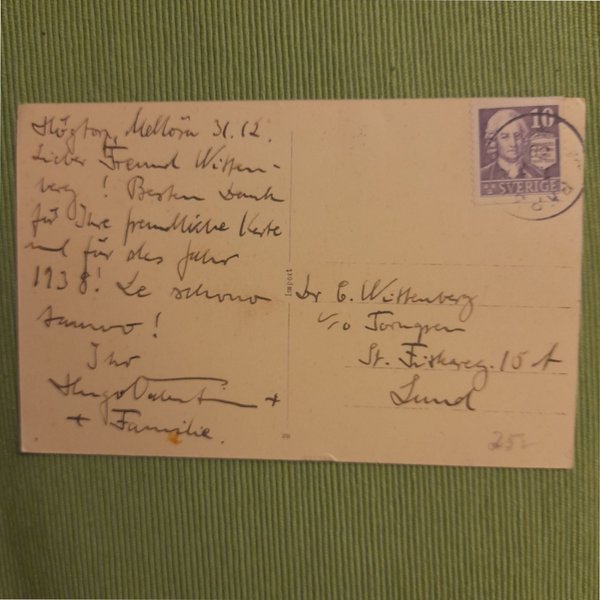 Högtorp, Mellösa 31.12.
Lieber Freund Witten-
berg! Besten Dank
für Ihre freundliche Karte
und für das Jahr
1938! Le schono
tauwo!
Ihr
Hugo Valentin +
+ Familie.
10
SVERIGE
Import
Dr E. Wittenberg
c/o Torngren
St. Fiskareg. 15 A
Lund
25:-